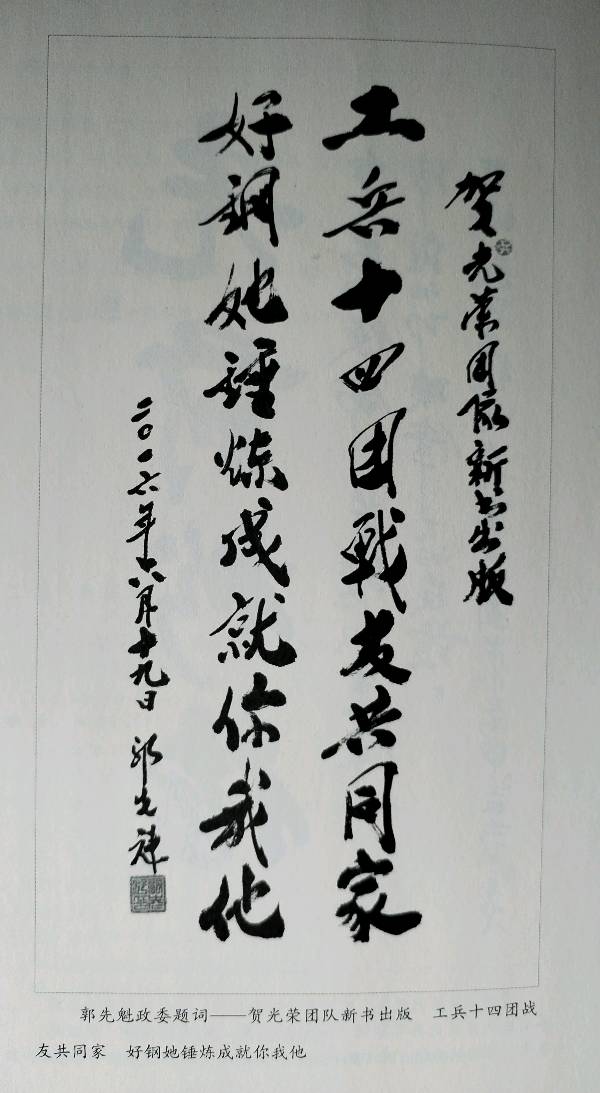 贺光荣团队新书出版
工兵十四团战友共同家
好钢她锤炼成就你我他
二〇一六年六月十九日 郭先魁
郭先魁政委题词——贺光荣团队新书出版　工兵十四团战
友共同家　好钢她锤炼成就你我他